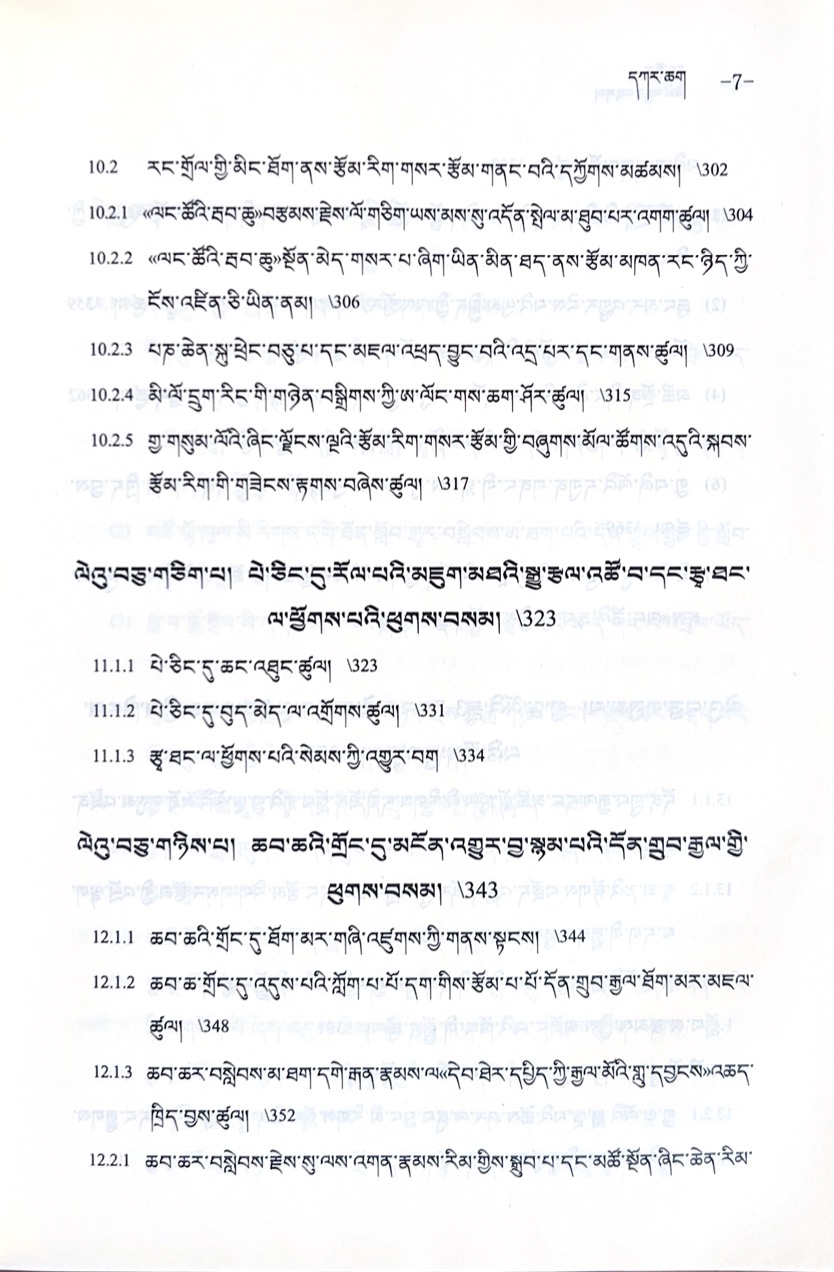 དཀར་ཆག -7-
10.2 རང་གྲོལ་གྱི་མིང་ཐོག་ནས་རྩོམ་རིག་གསར་རྩོམ་གནང་བའི་དཀྱོགས་མཚམས། \302
10.2.1 《ལང་ཚོའི་རྦབ་ཆུ》བརྩམས་རྗེས་ལོ་གཅིག་ཡས་མས་སུ་འདོན་སྤེལ་མ་ཐུབ་པར་འགག་ཚུལ། \304
10.2.2 《ལང་ཚོའི་རྦབ་ཆུ》སྔོན་མེད་གསར་པ་ཞིག་ཡིན་མིན་ཐད་ནས་རྩོམ་མཁན་རང་ཉིད་ཀྱི་
ངོས་འཛིན་ཅི་ཡིན་ནམ། \306
10.2.3 པཎ་ཆེན་སྐུ་ཕྲེང་བཅུ་པ་དང་མཇལ་འཕྲད་བྱུང་བའི་འདྲ་པར་དང་གནས་ཚུལ། \309
10.2.4 མི་ལོ་དྲུག་རིང་གི་གཉེན་བསྒྲིགས་ཀྱི་ཨ་ལོང་གས་ཆག་ཤོར་ཚུལ། \315
10.2.5 གྱ་གསུམ་ལོའི་ཞིང་ལྗོངས་ལྔའི་རྩོམ་རིག་གསར་རྩོམ་གྱི་བཞུགས་མོལ་ཚོགས་འདུའི་སྐབས་
རྩོམ་རིག་གི་གཟེངས་རྟགས་བཞེས་ཚུལ། \317
ལེའུ་བཅུ་གཅིག་པ། པེ་ཅིང་དུ་རོལ་པའི་མཇུག་མཐའི་སྒྱུ་རྩལ་འཚོ་བ་དང་རྩྭ་ཐང་
ལ་ཕྱོགས་པའི་ཕུགས་བསམ། \323
11.1.1 པེ་ཅིང་དུ་ཆང་འཐུང་ཚུལ། \323
11.1.2 པེ་ཅིང་དུ་བུད་མེད་ལ་འགྲོགས་ཚུལ། \331
11.1.3 རྩྭ་ཐང་ལ་ཕྱོགས་པའི་སེམས་ཀྱི་འགྱུར་བག \334
ལེའུ་བཅུ་གཉིས་པ། ཆབ་ཆའི་གྲོང་དུ་མངོན་འགྱུར་བྱ་སྙམ་པའི་དོན་གྲུབ་རྒྱལ་གྱི་
ཕུགས་བསམ། \343
12.1.1 ཆབ་ཆའི་གྲོང་དུ་ཐོག་མར་གཞི་འཛུགས་ཀྱི་གནས་སྟངས། \344
12.1.2 ཆབ་ཆ་གྲོང་དུ་འདུས་པའི་ཀློག་པ་པོ་དག་གིས་རྩོམ་པ་པོ་དོན་གྲུབ་རྒྱལ་ཐོག་མར་མཇལ་
ཚུལ། \348
12.1.3 ཆབ་ཆར་བསླེབས་མ་ཐག་དགེ་རྒན་རྣམས་ལ《དེབ་ཐེར་དཔྱིད་ཀྱི་རྒྱལ་མོའི་གླུ་དབྱངས》འཆད་
ཁྲིད་བྱས་ཚུལ། \352
12.2.1 ཆབ་ཆར་བསླེབས་རྗེས་སུ་ལས་འགན་རྣམས་རིམ་གྱིས་སྒྲུབ་པ་དང་མཚོ་སྔོན་ཞིང་ཆེན་རིམ་